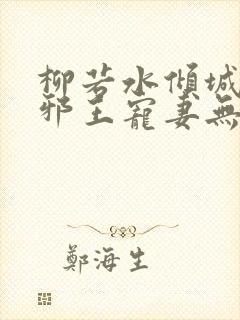 柳若水傾城
邪王寵妻無
鄭海生